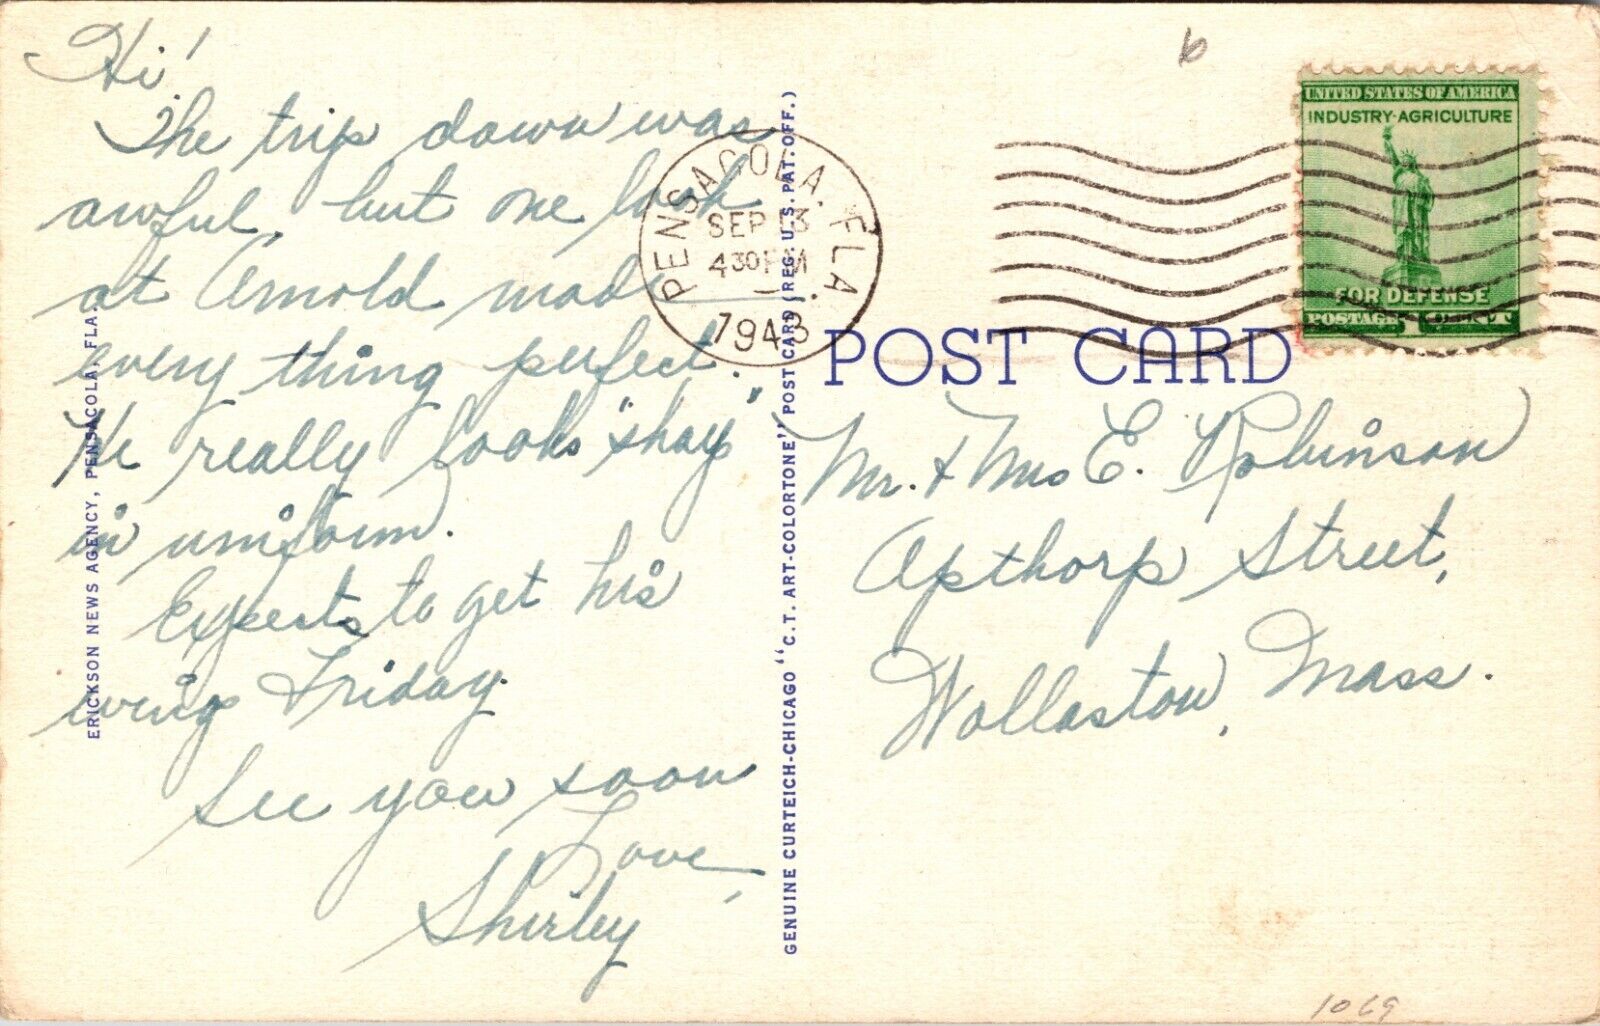 Hi!
The trip down was
awful, but one look
at Arnold made
every thing perfect.
He really looks "shay"
in uniform.
Expects to get his
wings Friday.
See you soon
Love,
Shirley
ERICKSON NEWS AGENCY, PENSACOLA, FLA.
GENUINE CURTEICH-CHICAGO "C.T. ART-COLORTONE" POST CARD (REG. U.S. PAT. OFF.)
PENSACOLA, FLA.
SEP 13
4 30 PM
1943
6
UNITED STATES OF AMERICA
INDUSTRY·AGRICULTURE
FOR DEFENSE
POSTAGE 1 CENT
POST CARD
Mr. & Mrs E. Robinson
Apthorp Street,
Wollaston, Mass.
1069